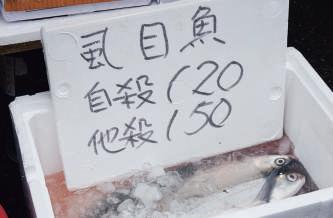 虱目魚
自殺120
他殺150